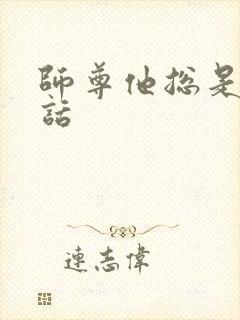 師尊他總是
話
連志偉